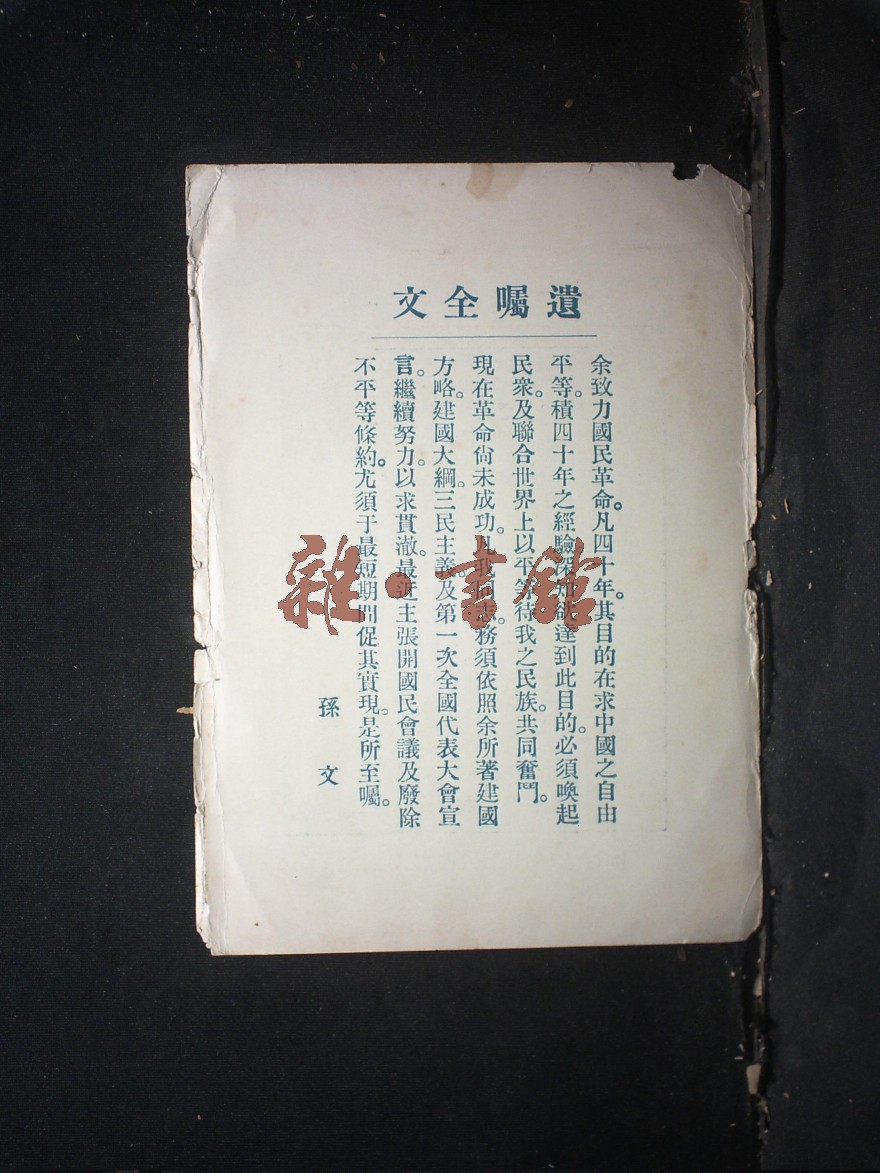 遺囑全文
余致力國民革命。凡四十年。其目的在求中國之自由
平等。積四十年之經驗。深知欲達到此目的。必須喚起
民衆。及聯合世界上以平等待我之民族。共同奮鬥。
現在革命尙未成功。凡我同志。務須依照余所著建國
方略。建國大綱。三民主義。及第一次全國代表大會宣
言。繼續努力。以求貫澈。最近主張開國民會議及廢除
不平等條約。尤須于最短期間促其實現。是所至囑。
孫文
雜·書館